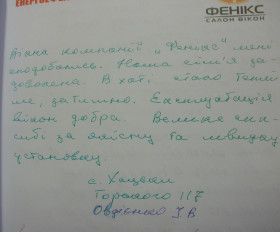 ЕНЕРГО
ФЕНІКС
САЛОН ВІКОН
Вікна компанії "Фенікс" мені
сподобались. Наша сім'я за-
доволена. В хаті стало тепли-
ше, затишно. Експлуатація
вікон добра. Велике спа-
сибі за якісну та швидку
установку
с. Хацьки
117
І В